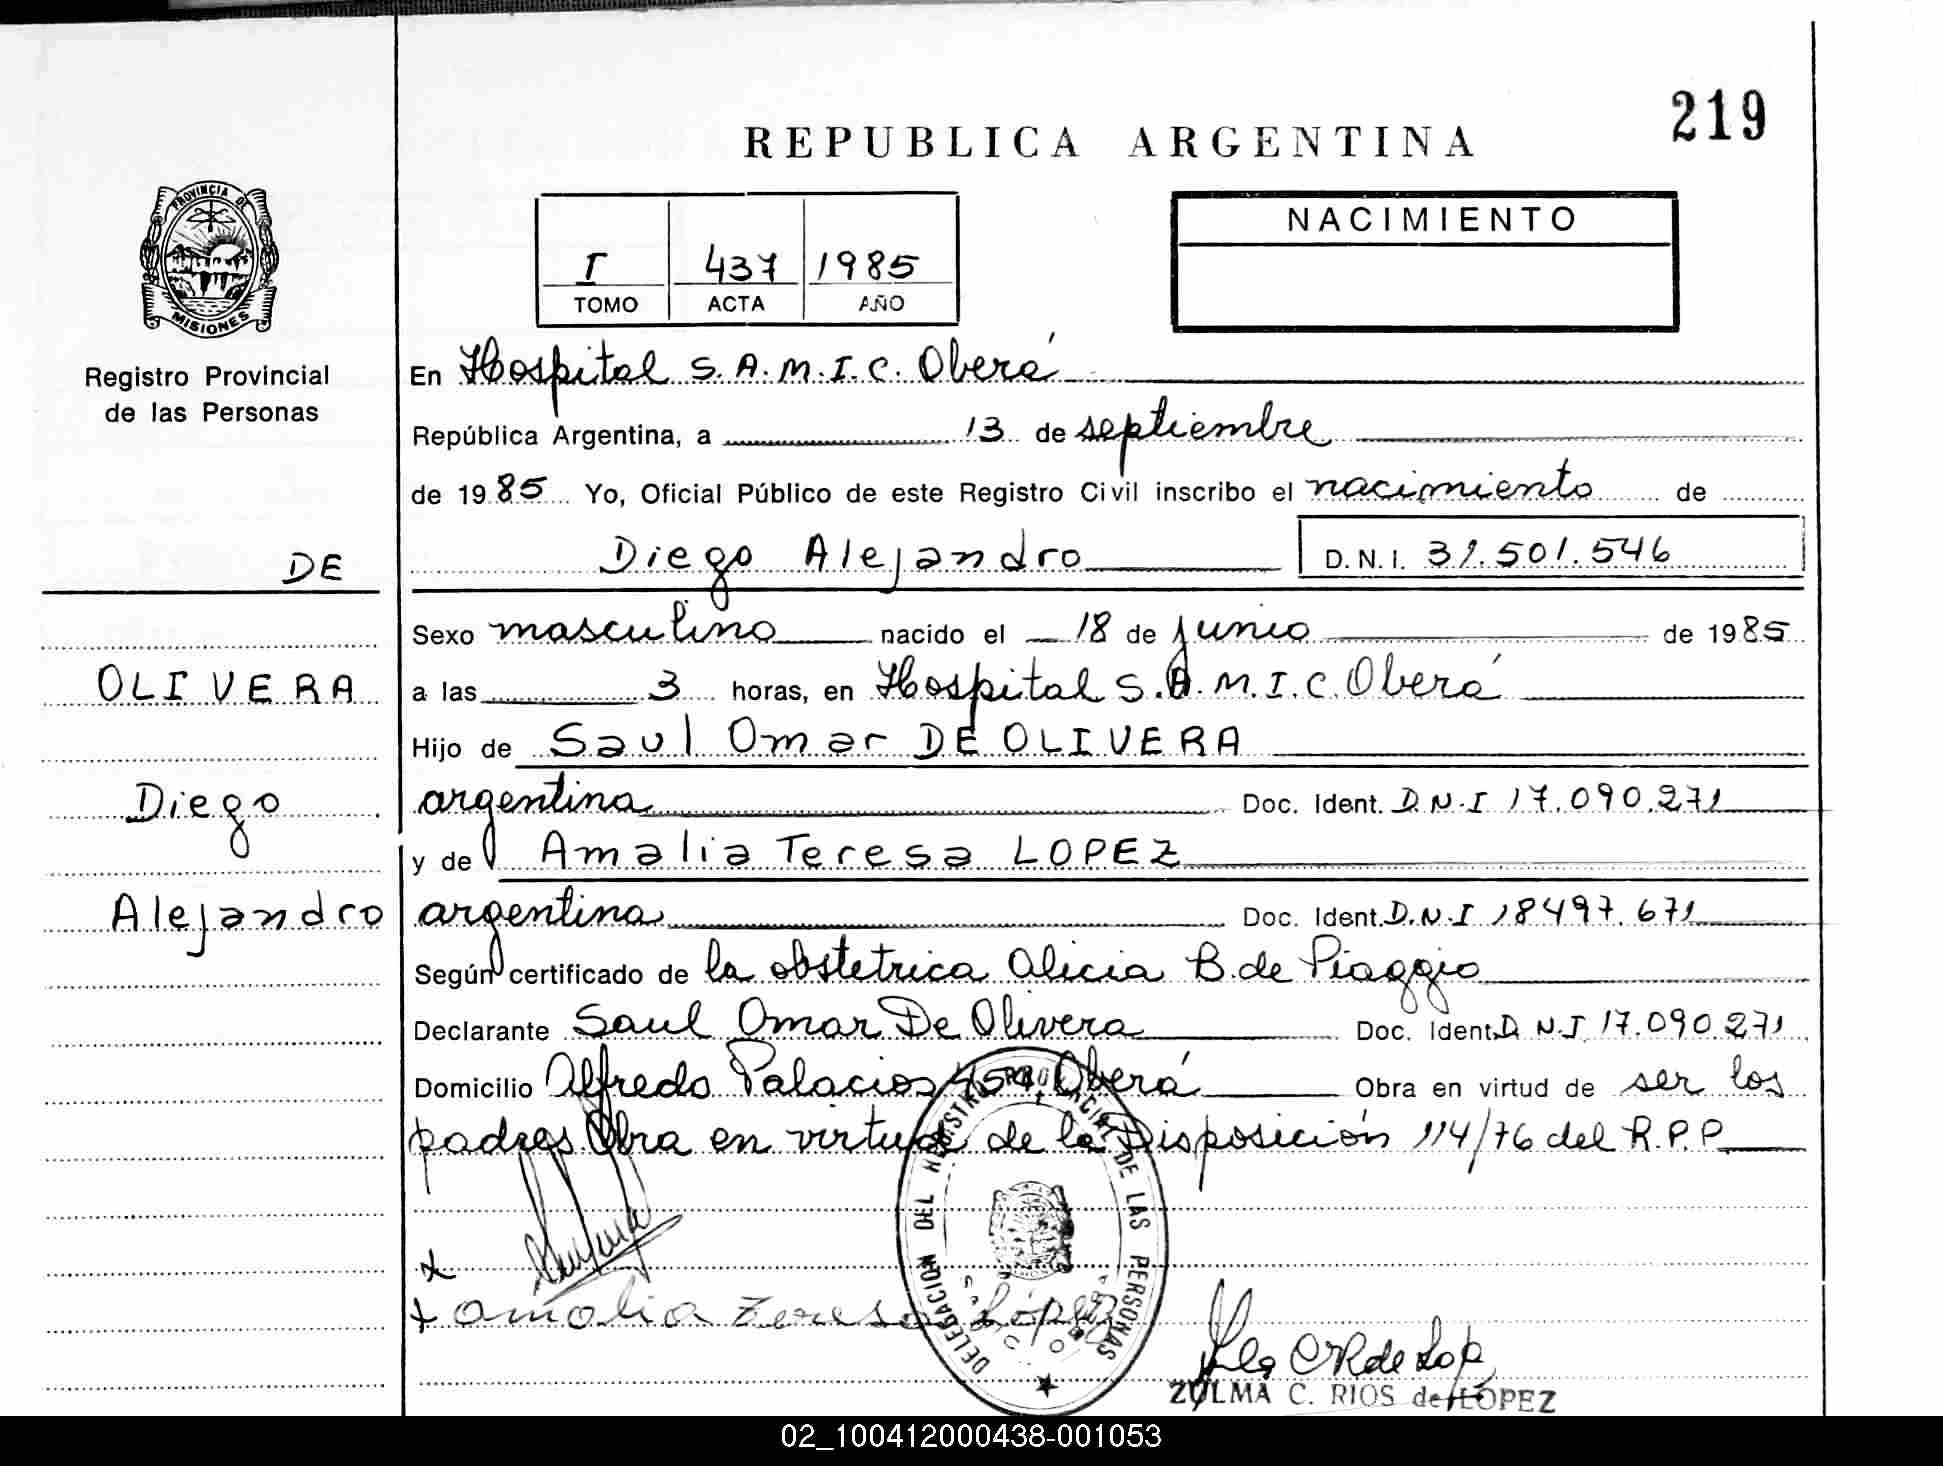 219
REPUBLICA ARGENTINA
PROVINCIA DE
MISIONES
Registro Provincial
de las Personas
I 437 1985
TOMO ACTA AÑO
NACIMIENTO
En Hospital S.A.M.I.C. Oberá
República Argentina, a 13 de septiembre
de 1985 Yo, Oficial Público de este Registro Civil inscribo el nacimiento de
Diego Alejandro D.N.I. 31.501.546
Sexo masculino nacido el 18 de junio de 1985
a las 3 horas, en Hospital S.A.M.I.C. Oberá
Hijo de Saul Omar DE OLIVERA
argentina Doc. Ident. D.N.I 17.090.271
y de Amalia Teresa LOPEZ
argentina Doc. Ident. D.N.I 18497.671
Según certificado de la obstetrica Alicia B. de Piaggio
Declarante Saul Omar De Olivera Doc. Ident. D.N.I. 17.090.271
Domicilio Alfredo Palacios 454, Oberá Obra en virtud de ser los
padres. Obra en virtud de la Disposición 114/76 del R.P.P.
DE
OLIVERA
Diego
Alejandro
amalia Teresa López
DELEGACION DEL REGISTRO PROVINCIAL DE LAS PERSONAS
ZULMA C. RIOS de LOPEZ
02_100412000438-001053